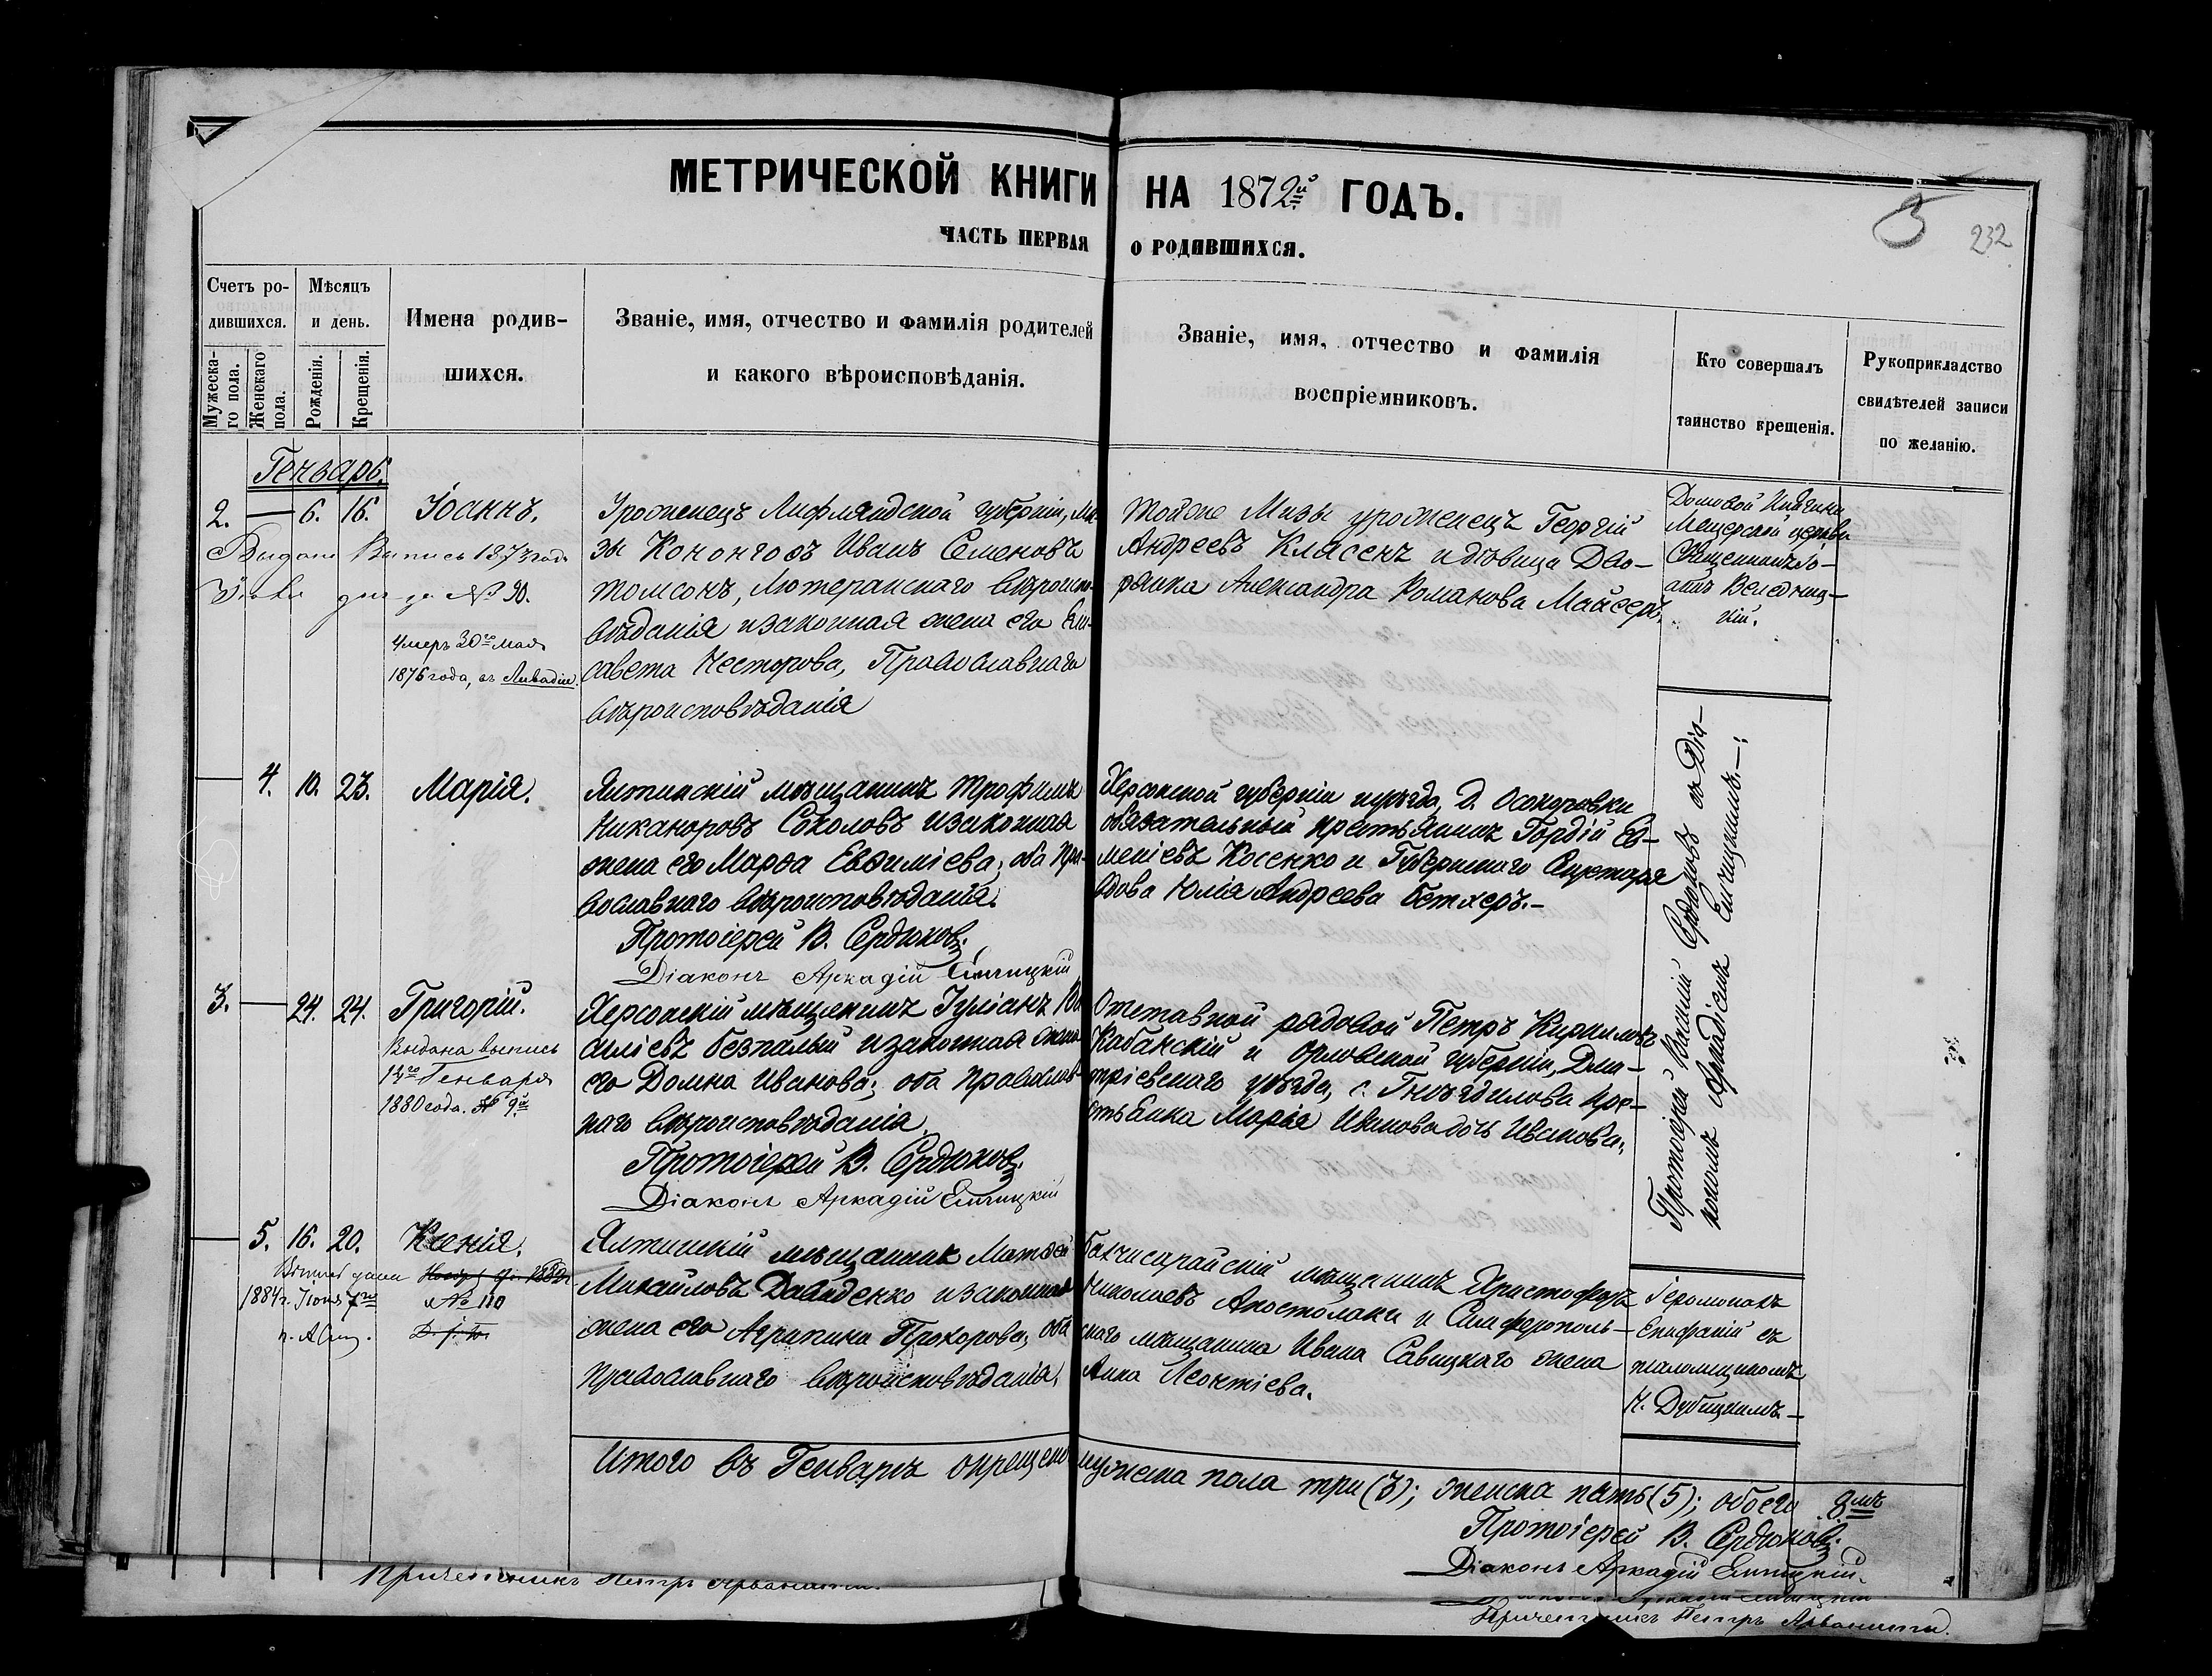 МЕТРИЧЕСКОЙ КНИГИ НА 1872й ГОДЪ.
ЧАСТЬ ПЕРВАЯ О РОДИВШИХСЯ.
232
Счетъ ро-
дившихся.
Мужеска-
го пола.
Женскаго
пола.
Мѣсяцъ
и день.
Рожденія.
Крещенія.
Имена родив-
шихся.
Званіе, имя, отчество и фамилія родителей
и какого вѣроисповѣданія.
Званіе, имя, отчество и фамилія
воспріемниковъ.
Кто совершалъ
таинство крещенія.
Рукоприкладство
свидѣтелей записи
по желанію.
Генварь.
2. — 6. 16. Іоаннъ.
Выдана Выпись 1873 года
за № 90.
Умеръ 30го мая
1876 года, въ Ливадіи.
Уроженецъ Лифляндской губерніи, Мы-
зы Иванъ Семеновъ
Томсонъ, Лютеранскаго вѣроиспо-
вѣданія и законная жена его Ели-
савета Несторова, Православнаго
вѣроисповѣданія
тойже Мызы уроженецъ Георгій
Андреевъ Класенъ и дѣвица Дво-
рянка Александра Романова Майсеръ.
Домовой Княгини
Мещерской церкви
Священникъ Іо-
аннъ
— 4. 10. 23. Марія.
Ялтинскій мѣщанинъ Трофимъ
Никаноровъ Соколовъ и законная
жена его Марѳа Евѳиміева; оба Пра-
вославнаго вѣроисповѣданія.
Протоіерей В. Сердюковъ.
Діаконъ Аркадій
Херсонской губерніи и уѣзда, д. Осокоровки
обязательный крестьянинъ Гордій Ев-
меніевъ Косенко и Губернскаго Секретаря
вдова Юлія Андреева Бетхеръ.—
Протоіерей Василій Сердюковъ съ Діа-
кономъ Аркадіемъ
3. — 24. 24. Григорій.
Выдана выпись
Генваря
1880 года. № 9й
Херсонскій мѣщанинъ Іуліанъ Ва-
силіевъ Безпалый и законная жена
его Домна Иванова; оба православ-
наго вѣроисповѣданія.
Протоіерей В. Сердюковъ.
Діаконъ Аркадій
Отставной рядовой Петръ Кириловъ
Кабанскій и Орловской губерніи, Дми-
тріевскаго уѣзда, с. Гнѣздилова кре-
стьянка Марія Иванова дочь Иванова.
— 5. 16. 20. Ксенія.
1884г. Іюня 7го
№ 110
Ялтинскій мѣщанинъ Матѳей
Михайловъ Давиденко и законная
жена его Агрипина Прохорова, оба
православнаго вѣроисповѣданія.
Бахчисарайскій мѣщанинъ Христофоръ
Николаевъ Апостолаки и Симферополь-
скаго мѣщанина Ивана Савицкаго жена
Анна Леонтіева.
Іеромонахъ
Епифаній съ
псаломщикомъ
Н. Дубицкимъ.—
Итого въ Генварѣ окрещено мужска пола три (3); женска пять (5); обоего 8мь
Протоіерей В. Сердюковъ.
Діаконъ Аркадій
Причетникъ Петръ
Причетникъ Петръ